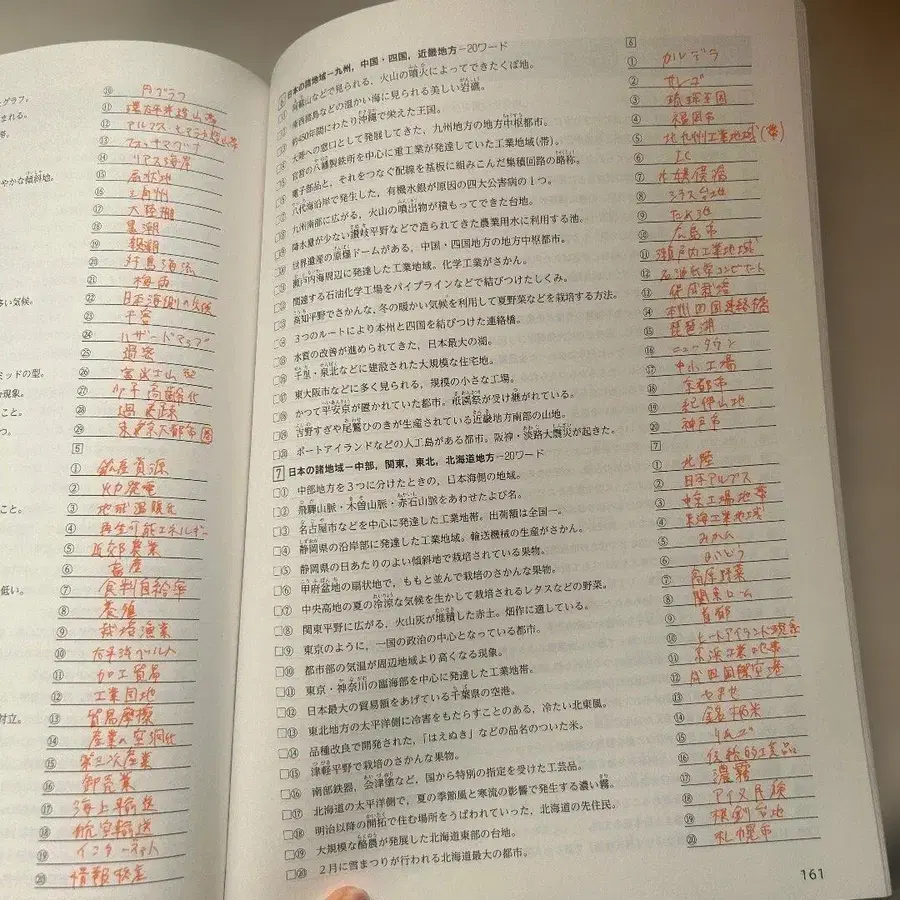 グラフ，
まれる。
帯。
やかな傾斜地。
多い気候。
ミッドの型。
現象。
こと。
つ。
こと。
低い。
対立。
⑩ 円グラフ
⑪ 環太平洋造山帯
⑫ アルプス・ヒマラヤ造山帯
⑬ フォッサマグナ
⑭ リアス海岸
⑮ 扇状地
⑯ 三角州
⑰ 大陸棚
⑱ 黒潮
⑲ 親潮
⑳ 対馬海流
㉑ 梅雨
㉒ 日本海側の気候
㉓ 干害
㉔ ハザードマップ
㉕ 過密
㉖ 富士山型
㉗ 少子高齢化
㉘ 過疎
㉙ 東京大都市圏
5
① 鉱産資源
② 火力発電
③ 地球温暖化
④ 再生可能エネルギー
⑤ 近郊農業
⑥ 畜産
⑦ 食料自給率
⑧ 養殖
⑨ 栽培漁業
⑩ 太平洋ベルト
⑪ 加工貿易
⑫ 工業団地
⑬ 貿易摩擦
⑭ 産業の空洞化
⑮ 第三次産業
⑯ 卸売業
⑰ 海上輸送
⑱ 航空輸送
⑲ インターネット
⑳ 情報格差
6 日本の諸地域－九州，中国・四国，近畿地方－20ワード
① 阿蘇山などで見られる，火山の噴火によってできたくぼ地。
② 南西諸島などの温かい海に見られる美しい岩礁。
③ 約450年間にわたり沖縄で栄えた王国。
④ 大陸への窓口として発展してきた，九州地方の地方中枢都市。
⑤ 官営の八幡製鉄所を中心に重工業が発達していた工業地域（帯）。
⑥ 電子部品と，それをつなぐ配線を基板に組みこんだ集積回路の略称。
⑦ 八代海沿岸で発生した，有機水銀が原因の四大公害病の１つ。
⑧ 九州南部に広がる，火山の噴出物が積もってできた台地。
⑨ 降水量が少ない讃岐平野などで造られてきた農業用水に利用する池。
⑩ 世界遺産の原爆ドームがある，中国・四国地方の地方中枢都市。
⑪ 瀬戸内海周辺に発達した工業地域。化学工業がさかん。
⑫ 関連する石油化学工場をパイプラインなどで結びつけたしくみ。
⑬ 高知平野でさかんな，冬の暖かい気候を利用して夏野菜などを栽培する方法。
⑭ ３つのルートにより本州と四国を結びつけた連絡橋。
⑮ 水質の改善が進められてきた，日本最大の湖。
⑯ 千里・泉北などに建設された大規模な住宅地。
⑰ 東大阪市などに多く見られる，規模の小さな工場。
⑱ かつて平安京が置かれていた都市。祇園祭が受け継がれている。
⑲ 吉野すぎや尾鷲ひのきが生産されている近畿地方南部の山地。
⑳ ポートアイランドなどの人工島がある都市。阪神・淡路大震災が起きた。
7 日本の諸地域－中部，関東，東北，北海道地方－20ワード
① 中部地方を３つに分けたときの，日本海側の地域。
② 飛騨山脈・木曽山脈・赤石山脈をあわせたよび名。
③ 名古屋市などを中心に発達した工業地帯。出荷額は全国一。
④ 静岡県の沿岸部に発達した工業地域。輸送機械の生産がさかん。
⑤ 静岡県の日あたりのよい傾斜地で栽培されている果物。
⑥ 甲府盆地の扇状地で，ももと並んで栽培のさかんな果物。
⑦ 中央高地の夏の冷涼な気候を生かして栽培されるレタスなどの野菜。
⑧ 関東平野に広がる，火山灰が堆積した赤土。畑作に適している。
⑨ 東京のように，一国の政治の中心となっている都市。
⑩ 都市部の気温が周辺地域より高くなる現象。
⑪ 東京・神奈川の臨海部を中心に発達した工業地帯。
⑫ 日本最大の貿易額をあげている千葉県の空港。
⑬ 東北地方の太平洋側に冷害をもたらすことのある，冷たい北東風。
⑭ 品種改良で開発された，「はえぬき」などの品名のついた米。
⑮ 津軽平野で栽培のさかんな果物。
⑯ 南部鉄器，会津塗など，国から特別の指定を受けた工芸品。
⑰ 北海道の太平洋側で，夏の季節風と寒流の影響で発生する濃い霧。
⑱ 明治以降の開拓で住む場所をうばわれていった，北海道の先住民。
⑲ 大規模な酪農が発展した北海道東部の台地。
⑳ ２月に雪まつりが行われる北海道最大の都市。
6
① カルデラ
② サンゴ
③ 琉球王国
④ 福岡市
⑤ 北九州工業地域(帯)
⑥ IC
⑦ 水俣病
⑧ シラス台地
⑨ ため池
⑩ 広島市
⑪ 瀬戸内工業地域
⑫ 石油化学コンビナート
⑬ 促成栽培
⑭ 本州四国連絡橋
⑮ 琵琶湖
⑯ ニュータウン
⑰ 中小工場
⑱ 京都市
⑲ 紀伊山地
⑳ 神戸市
7
① 北陸
② 日本アルプス
③ 中京工業地帯
④ 東海工業地域
⑤ みかん
⑥ ぶどう
⑦ 高原野菜
⑧ 関東ローム
⑨ 首都
⑩ ヒートアイランド現象
⑪ 京浜工業地帯
⑫ 成田国際空港
⑬ やませ
⑭ 銘柄米
⑮ りんご
⑯ 伝統的工芸品
⑰ 濃霧
⑱ アイヌ民族
⑲ 根釧台地
⑳ 札幌市
161